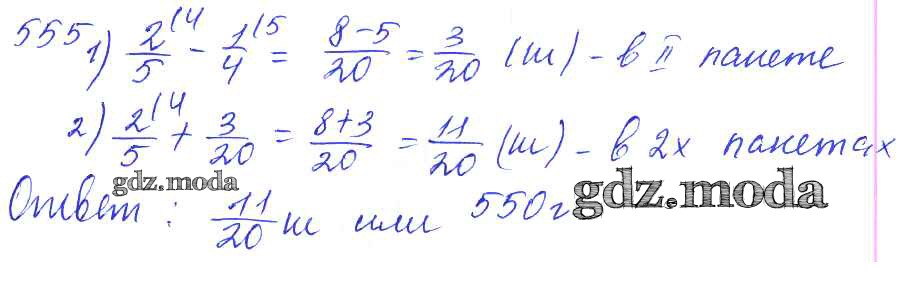 555 1) 2/5 (4 - 1/4 (5 = 8-5/20 = 3/20 (ш) - в II пакете
2) 2/5 (4 + 3/20 = 8+3/20 = 11/20 (ш) - в 2х пакетах
gdz.moda
Ответ: 11/20 ш или 550г
gdz.moda